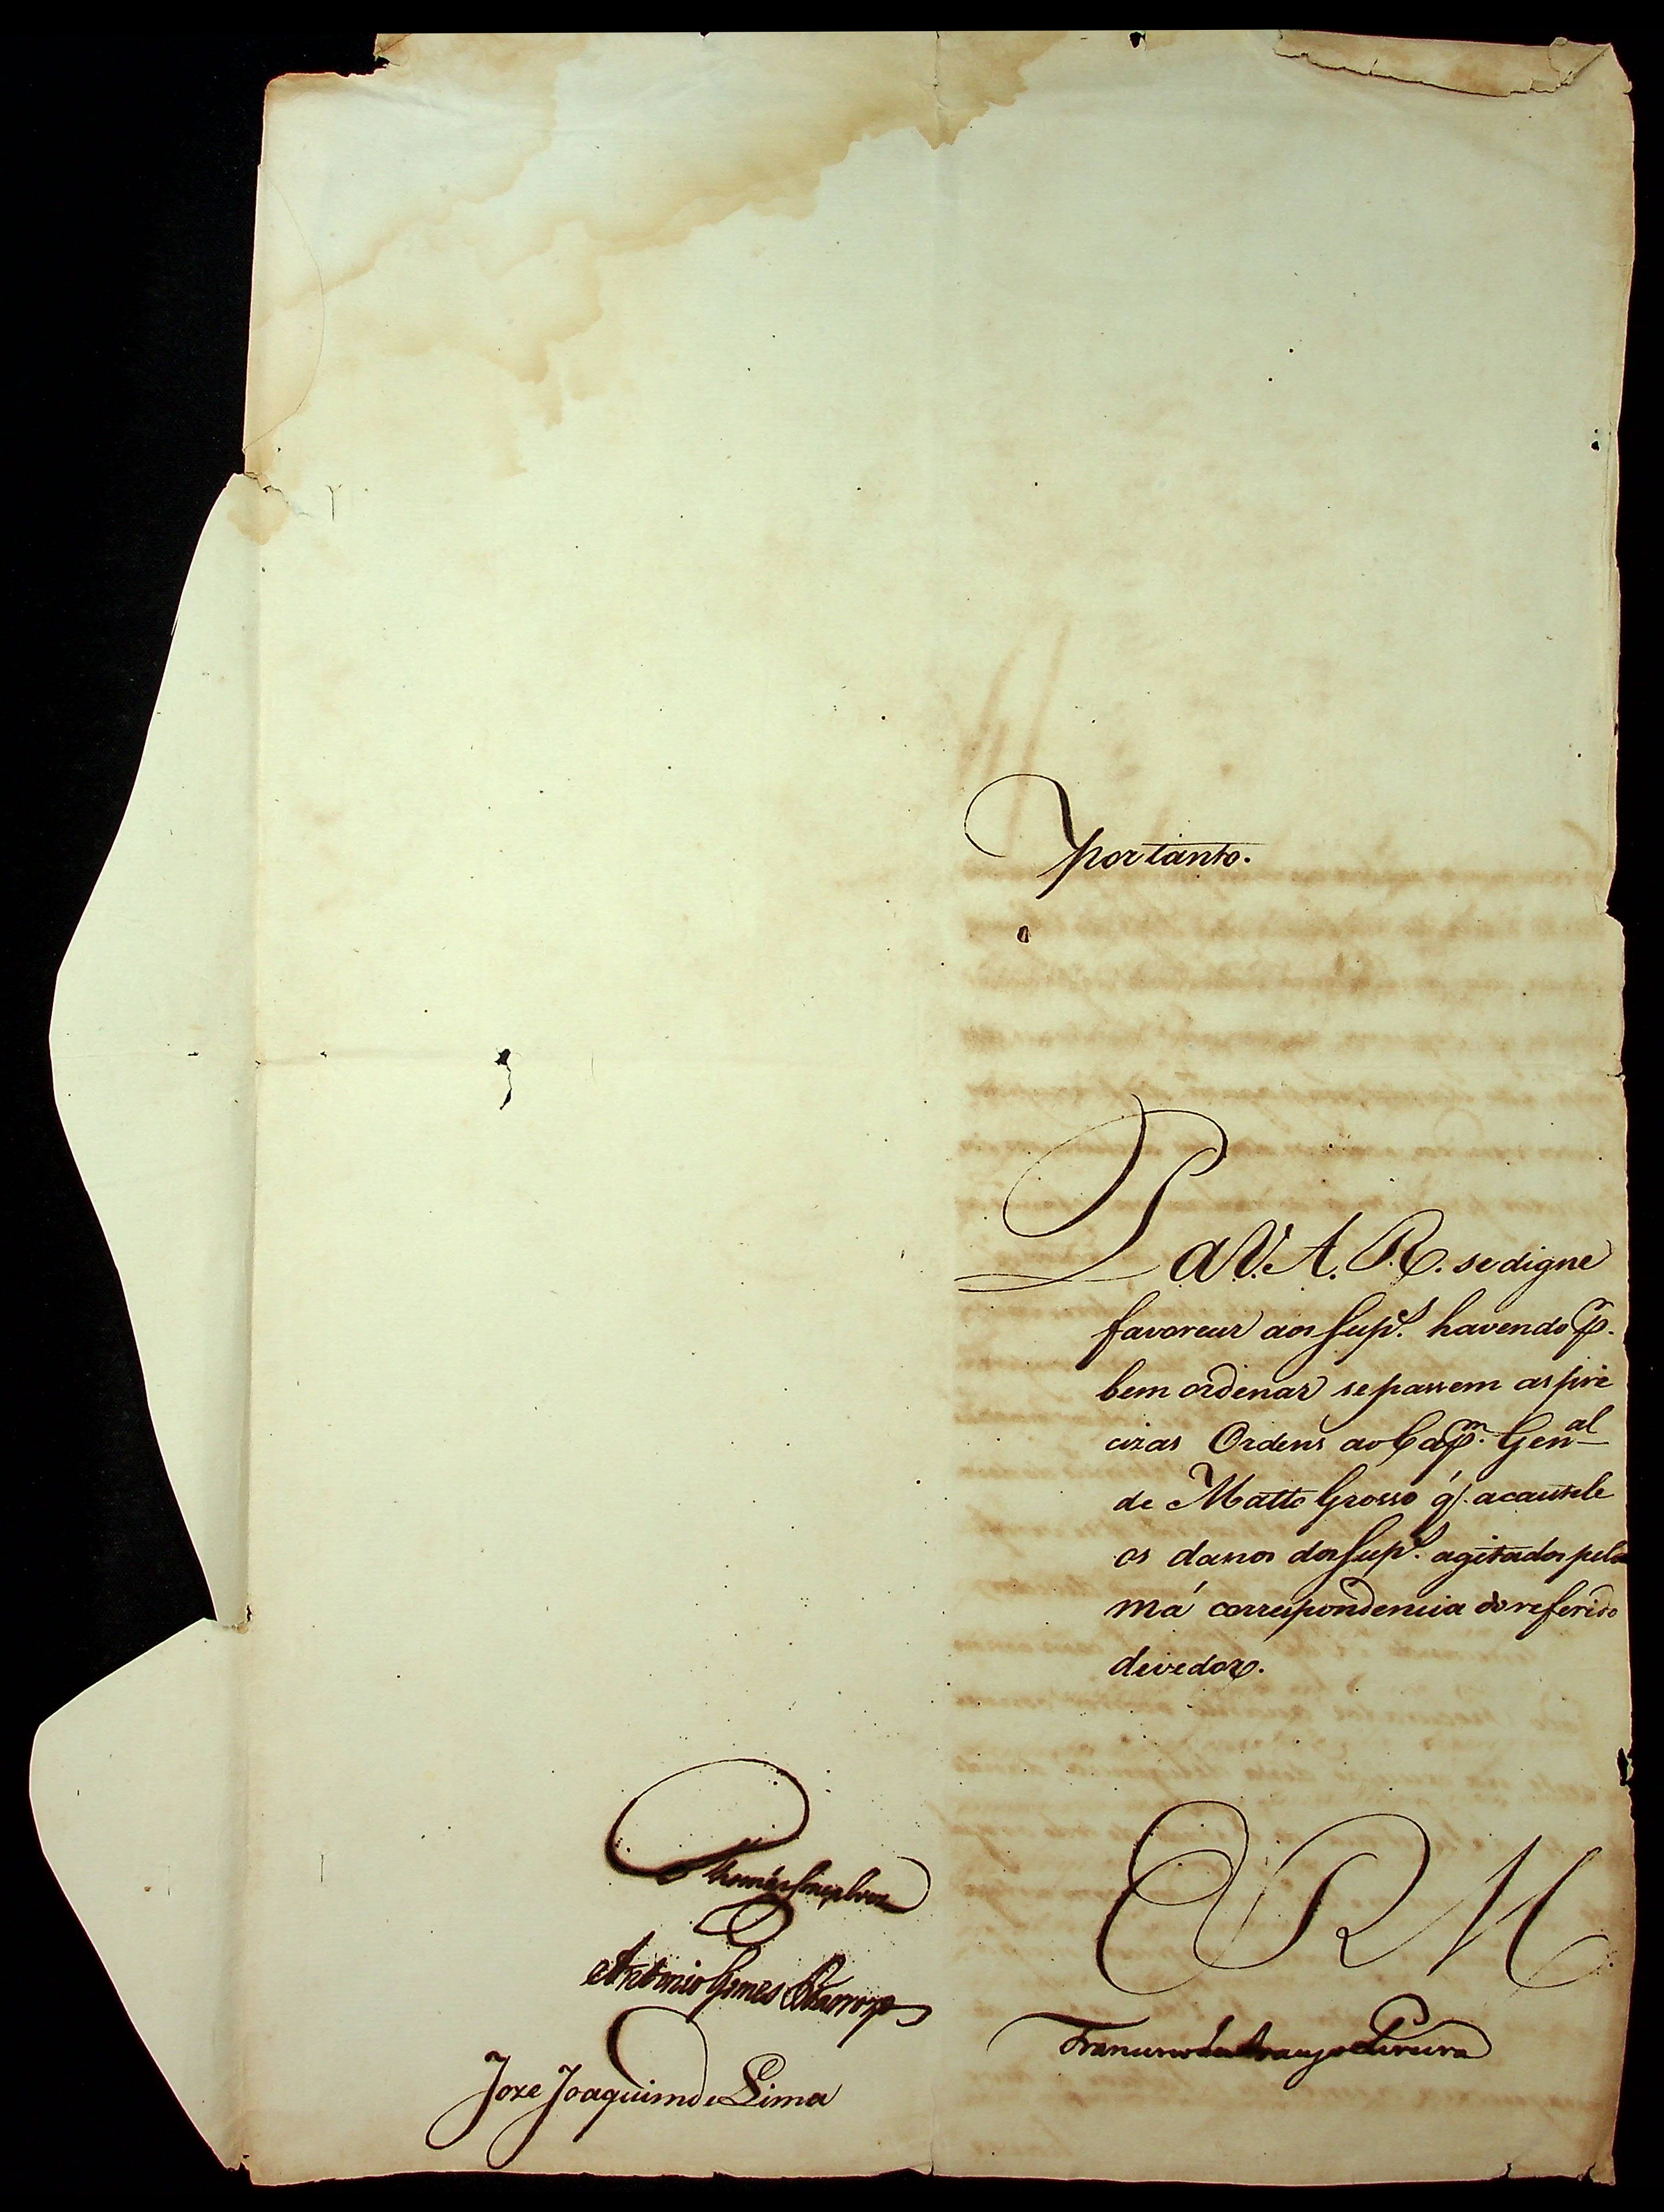 portanto.
P
a V. A. R. se digne
favorecer aos Sup.es havendo p.r
bem ordenar se passem as pre
cizas Ordens ao Cap.m Gen.al
de Matto Grosso q̃. acautele
os danos dos Sup.es agitados pela
má correspondencia do referido
devedor.
E R M
Thomás Gonçalves
Antonio Gomes Barrozo
Francisco de Araujo Pereira
Joze Joaquim de Lima